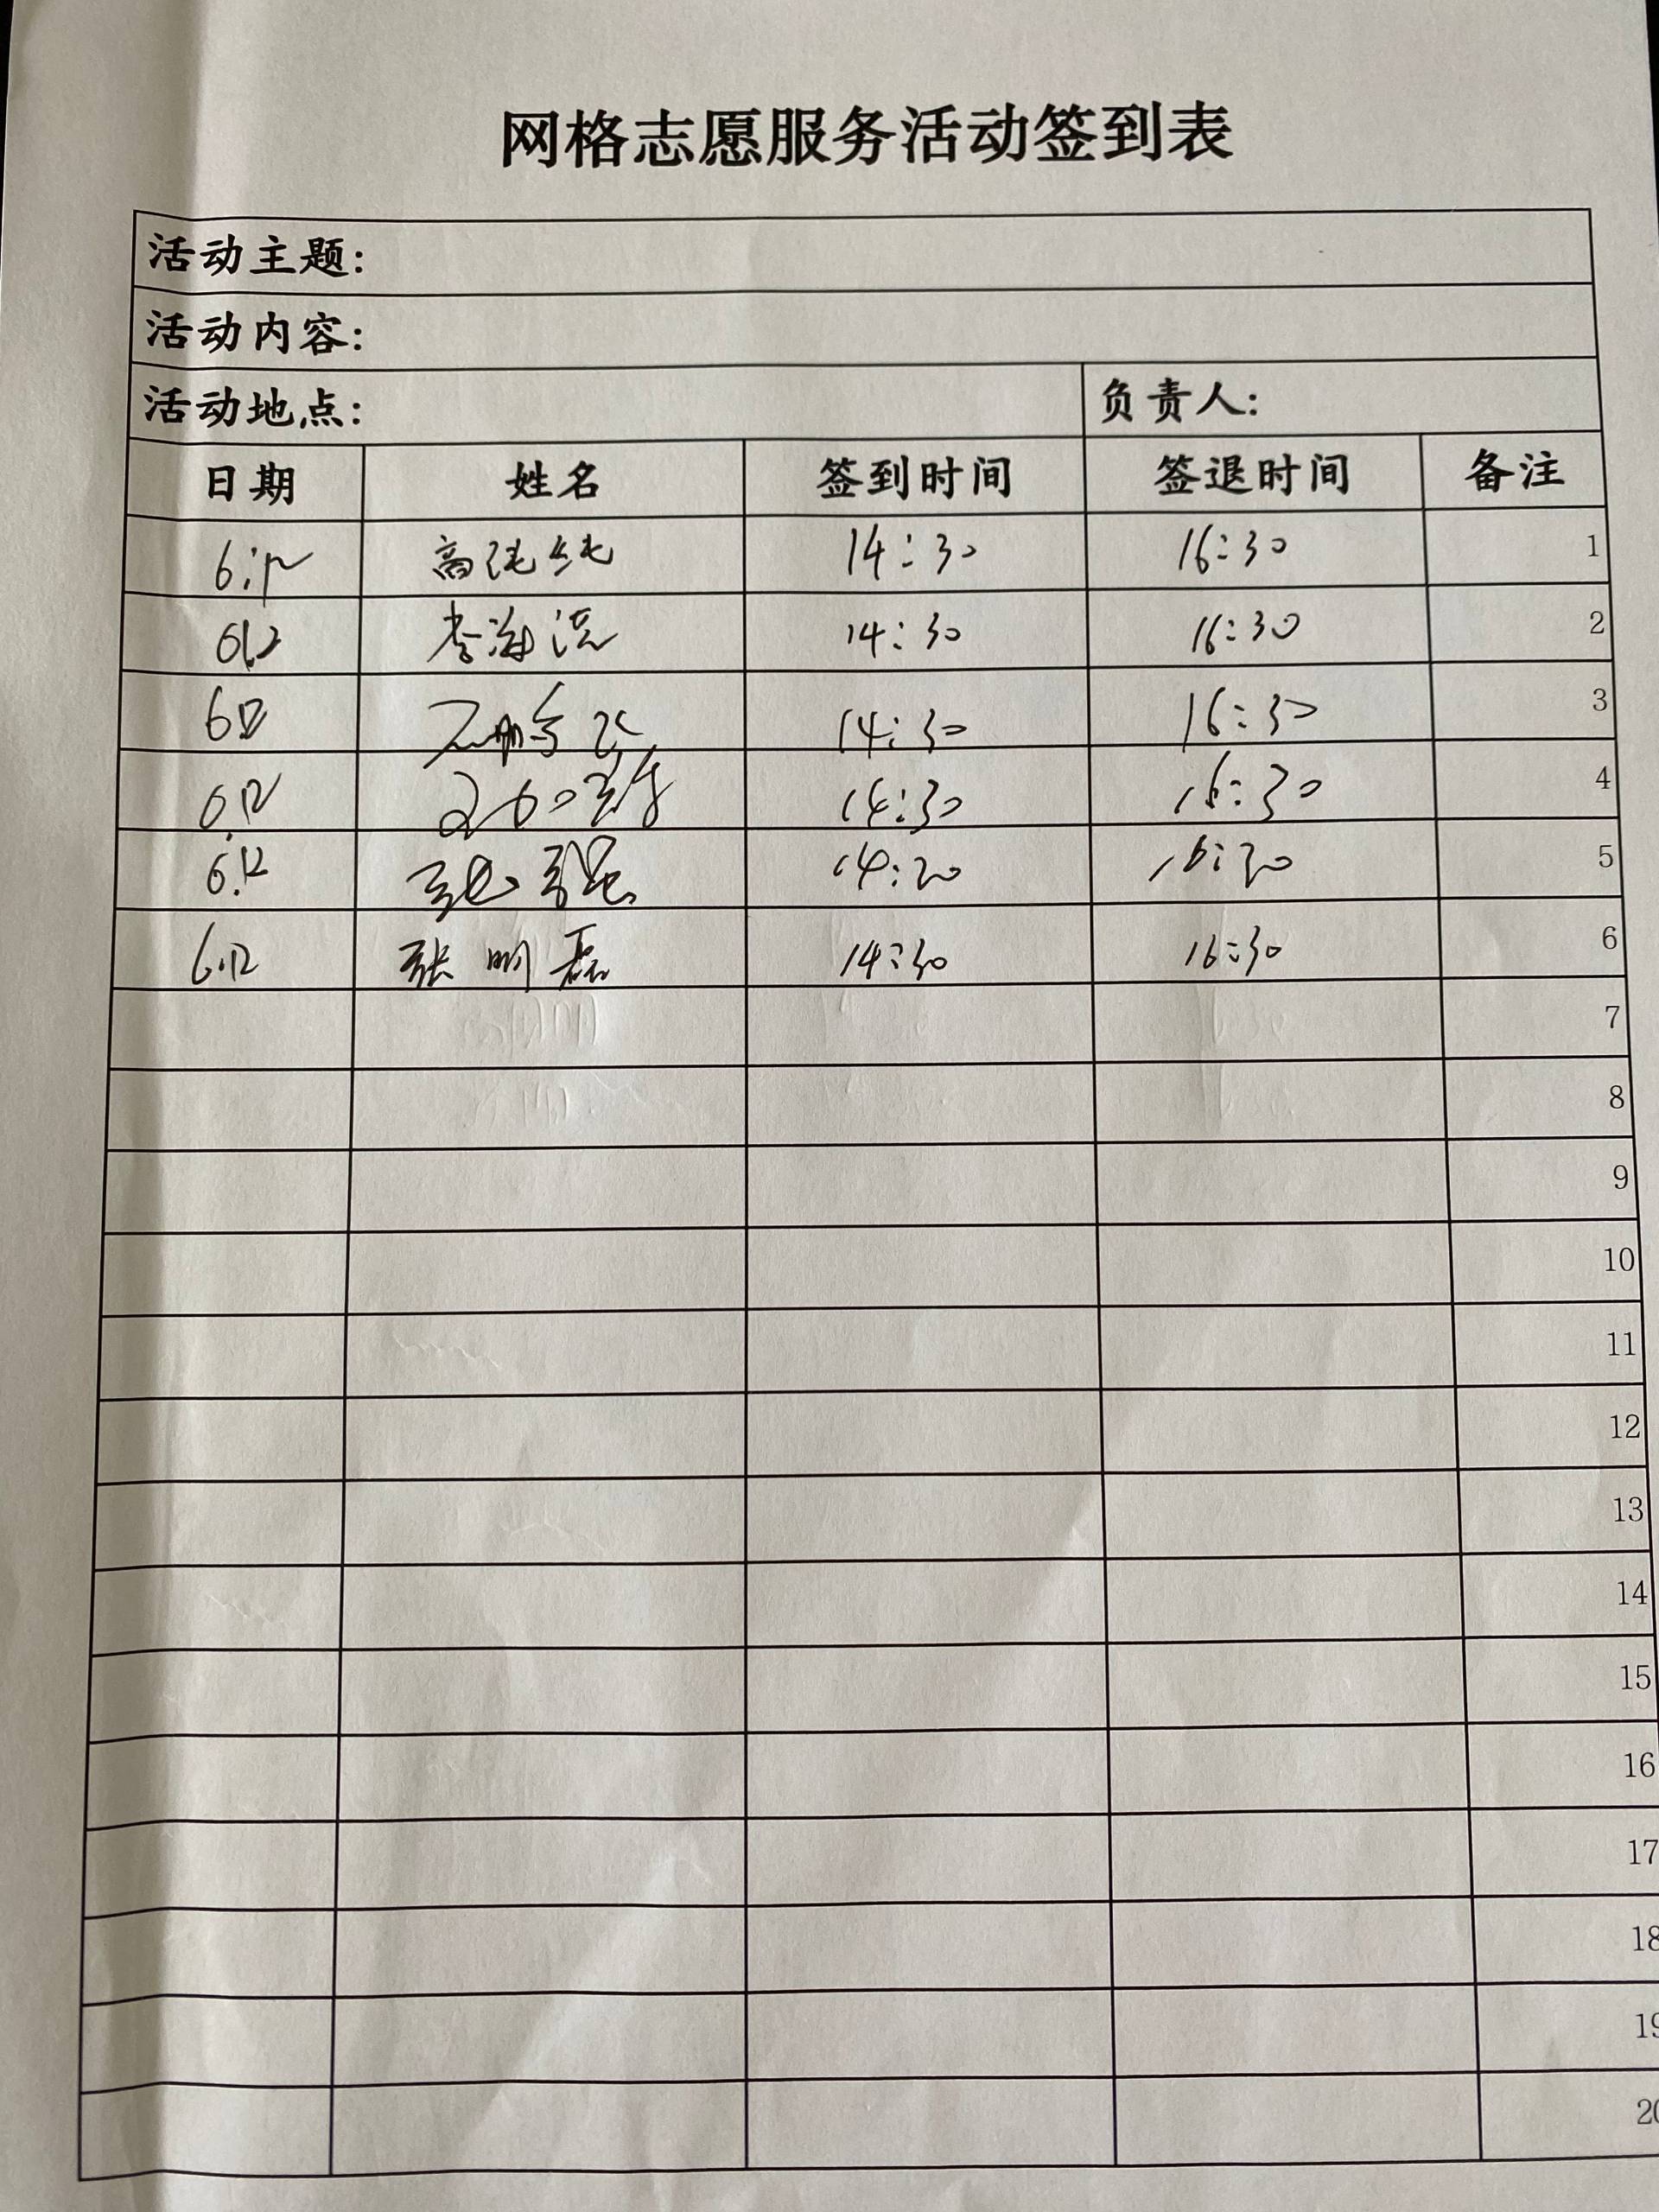 网格志愿服务活动签到表
活动主题:
活动内容:
活动地点: 负责人:
日期 姓名 签到时间 签退时间 备注
6.12 高纯纯 14:30 16:30 1
6.12 李海滨 14:30 16:30 2
6.12 14:30 16:30 3
6.12 14:30 16:30 4
6.12 张强 14:30 16:30 5
6.12 张明磊 14:30 16:30 6
7
8
9
10
11
12
13
14
15
16
17
18
19
20